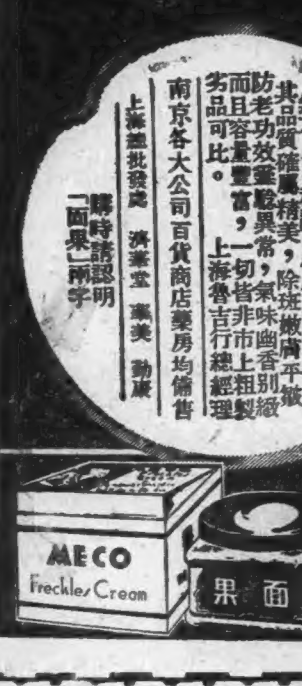 其品質確屬精美，除斑嫩膚平皺
防老功效靈驗異常，氣味幽香別緻
而且容量豐富，一切皆非市上粗製
劣品可比。 上海魯吉行總經理
南京各大公司百貨商店藥房均備售
上海總批發處 濟華堂
購時請認明
「面果」兩字
MECO
Freckles Cream
果面